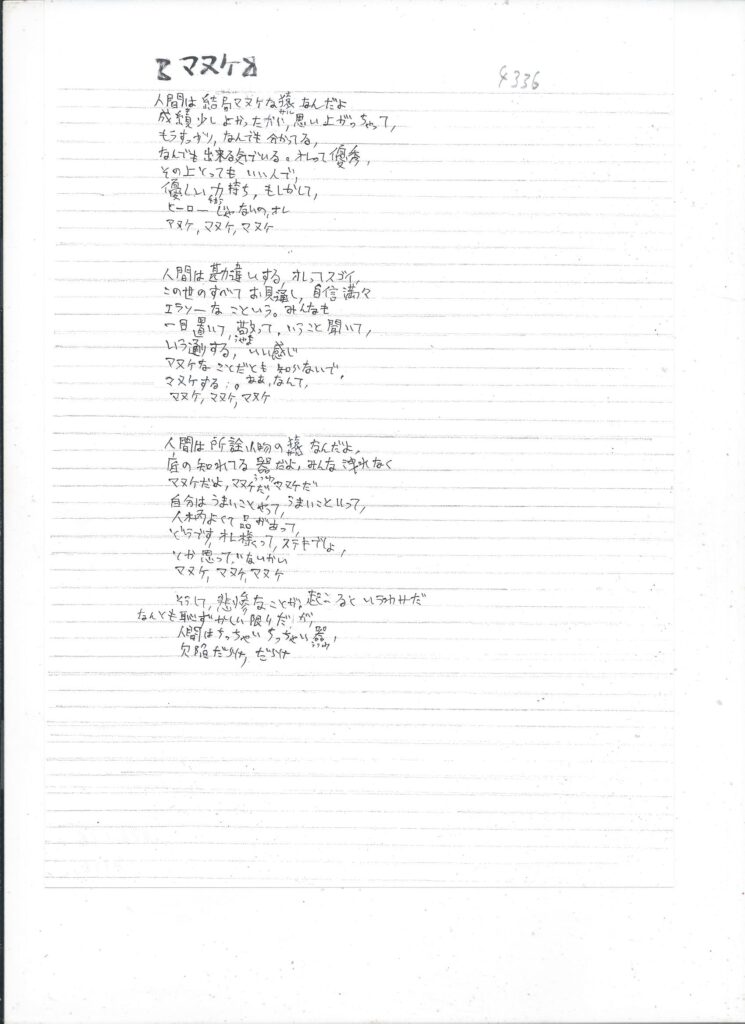 【マヌケ】
4336
人間は結局マヌケな猿なんだよ
サル
成績少しよかったからに、思い上がっちゃって、
もうすっかり、なんでも分かってる、
なんでも出来る気でいる。オレって優秀、
その上とっても いい人で、
優しい力持ち、もしかして、
ヒーローじゃないの、オレ
マヌケ、マヌケ、マヌケ
人間は勘違いする、オレってスゴイ、
この世のすべてお見通し、自信満々
エラソーなこという。みんなも
一目置いて、敬って、いうこと聞いて、
いう通りする、いい感じ
マヌケなことだとも知らないで、
マヌケする:。ああ、なんて、
マヌケ、マヌケ、マヌケ
人間は所詮 の猿なんだよ、
底の知れてる器だよ、みんな洩れなく
うつわ
マヌケだよ、マヌケだ、マヌケだ
自分はうまいことやって、うまいこといって、
人柄よくて品があって、
どうです、オレ様って、ステキでしょ、
とか思って ないかい
マヌケ、マヌケ、マヌケ
そうして、悲惨なことが、起こるという
なんとも恥ずかしい限りだが、
人間はちっちゃいちっちゃい器、
うつわ
欠陥だらけ、だらけ